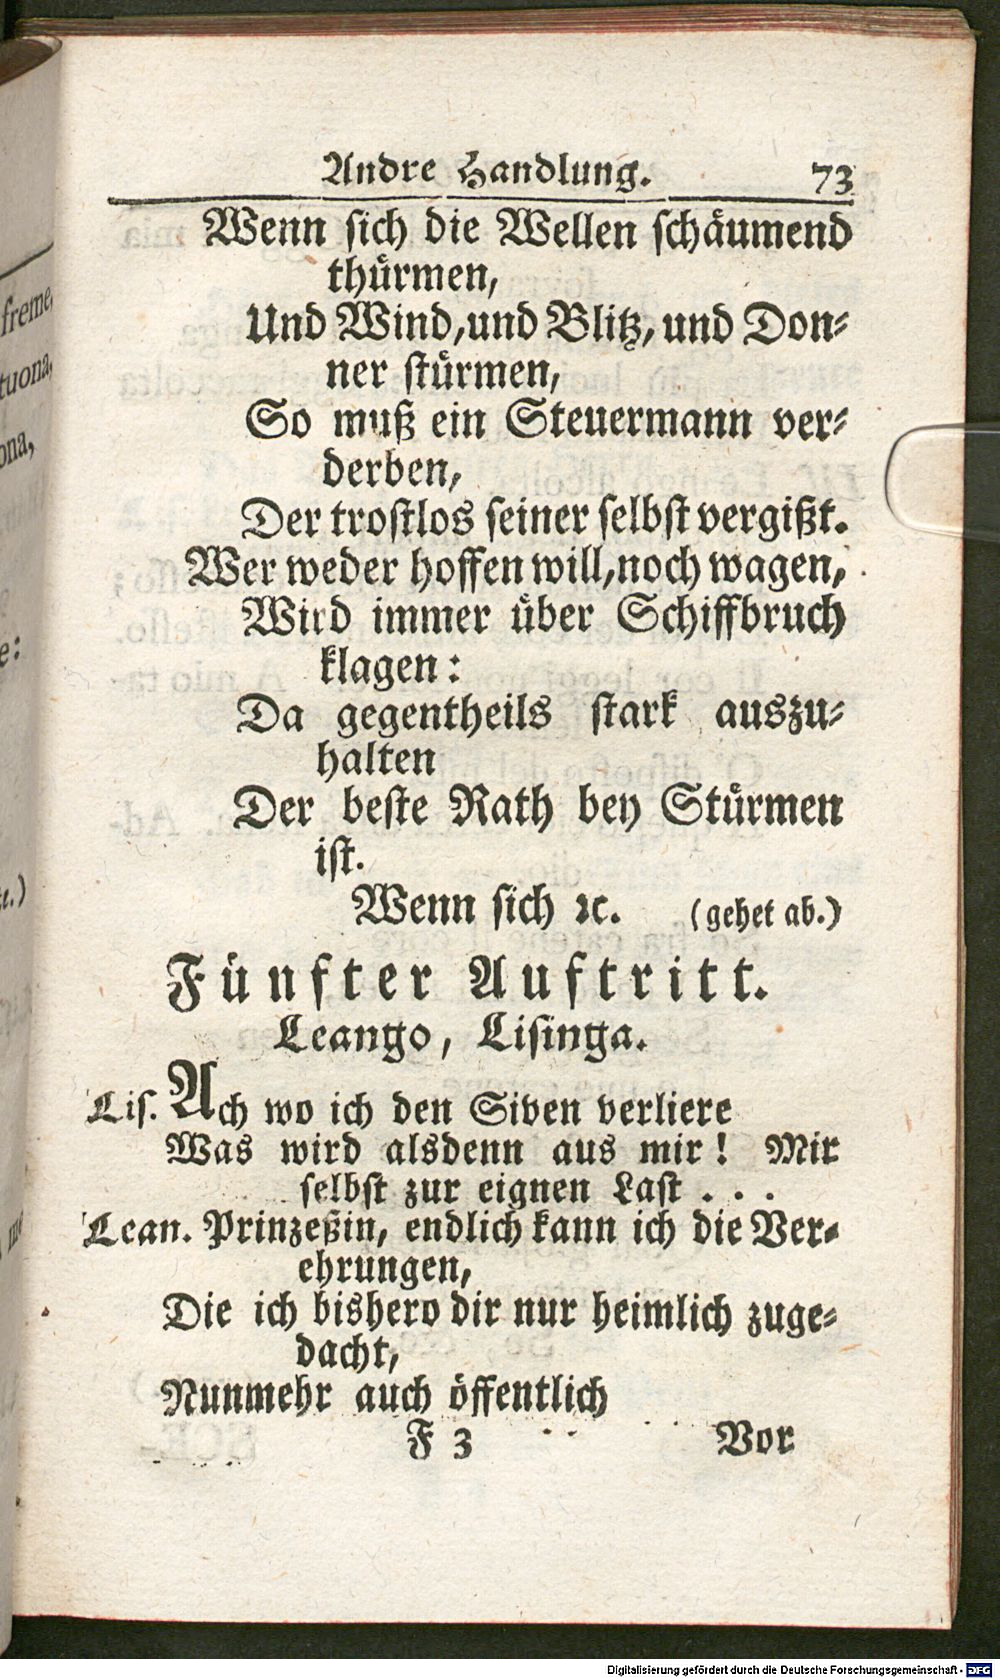 Andre Handlung. 73
Wenn sich die Wellen schäumend
thürmen,
Und Wind, und Blitz, und Don-
ner stürmen,
So muß ein Steuermann ver-
derben,
Der trostlos seiner selbst vergißt.
Wer weder hoffen will, noch wagen,
Wird immer über Schiffbruch
klagen:
Da gegentheils stark auszu-
halten
Der beste Rath bey Stürmen
ist.
Wenn sich ꝛc. (gehet ab.)
Fünfter Auftritt.
Leango, Lisinga.
Lis. Ach wo ich den Siven verliere
Was wird alsdenn aus mir! Mir
selbst zur eignen Last . . .
Lean. Prinzeßin, endlich kann ich die Ver-
ehrungen,
Die ich bishero dir nur heimlich zuge-
dacht,
Nunmehr auch öffentlich
F 3 Vor
freme,
tuona,
ona,
e:
t.)
me
Digitalisierung gefördert durch die Deutsche Forschungsgemeinschaft - DFG